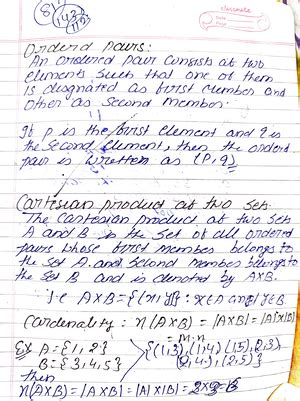 classmate
Date
Page
Ordered pairs:
An ordered pair consists of two
elements such that one of them
is disgnated as first member and
other as second member.
If p is the first element and q is
the second element, then the ordered
pair is written as (P, q)
Cartesian product of two sets
The Cartesian product of two sets
A and B is the set of all ordered
pairs whose first member belongs to
the set A. and second member belongs to
the set B and is denoted by A×B.
ie A×B = {(x, y)} : x∈A and y∈B
Cardenality : n(A×B) = |A×B| = |A|×|B|
= m·n
Ex A={1,2} {(1,3), (1,4) (1,5), (2,3)
B={3,4,5} (2,4), (2,5)}
then
n(A×B) = |A×B| = |A|×|B| = 2×3=6